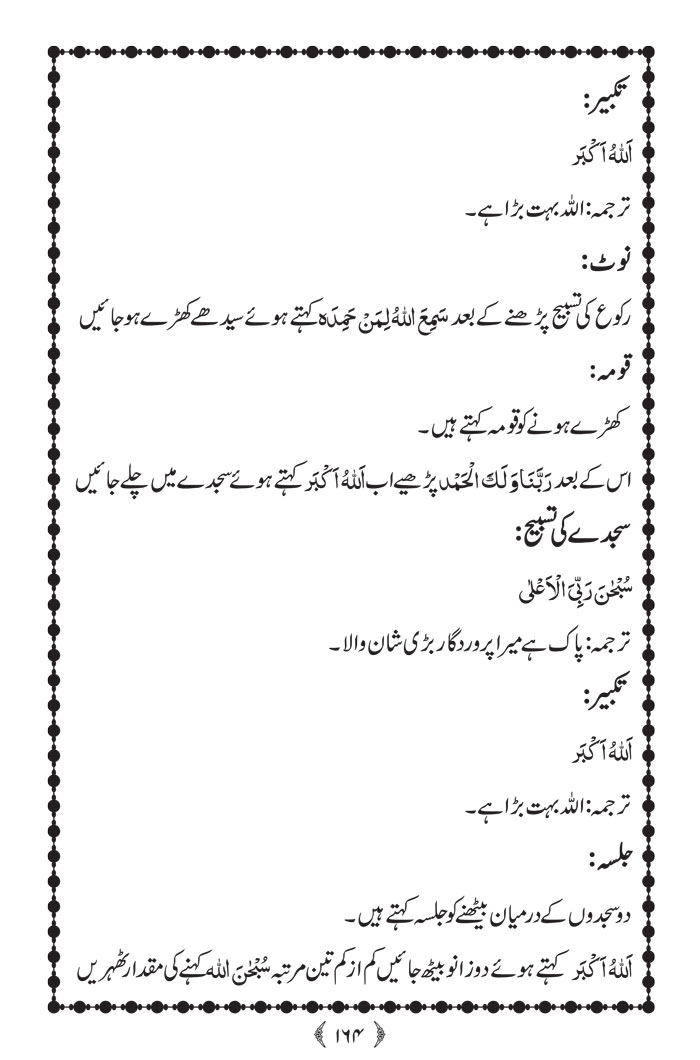 تکبیر:
اَللهُ اَکْبَر
ترجمہ: اللہ بہت بڑا ہے۔
نوٹ:
رکوع کی تسبیح پڑھنے کے بعد سَمِعَ اللهُ لِمَنْ حَمِدَہ کہتے ہوئے سیدھے کھڑے ہوجائیں
قومہ:
کھڑے ہونے کو قومہ کہتے ہیں۔
اس کے بعد رَبَّنَا وَ لَكَ الْحَمْد پڑھیے اب اَللهُ اَکْبَر کہتے ہوئے سجدے میں چلے جائیں
سجدے کی تسبیح:
سُبْحٰنَ رَبِّیَ الْاَعْلٰی
ترجمہ: پاک ہے میرا پروردگار بڑی شان والا۔
تکبیر:
اَللهُ اَکْبَر
ترجمہ: اللہ بہت بڑا ہے۔
جلسہ:
دو سجدوں کے درمیان بیٹھنے کو جلسہ کہتے ہیں۔
اَللهُ اَکْبَر کہتے ہوئے دوزانو بیٹھ جائیں کم از کم تین مرتبہ سُبْحٰنَ الله کہنے کی مقدار ٹھہریں
۱۶۴